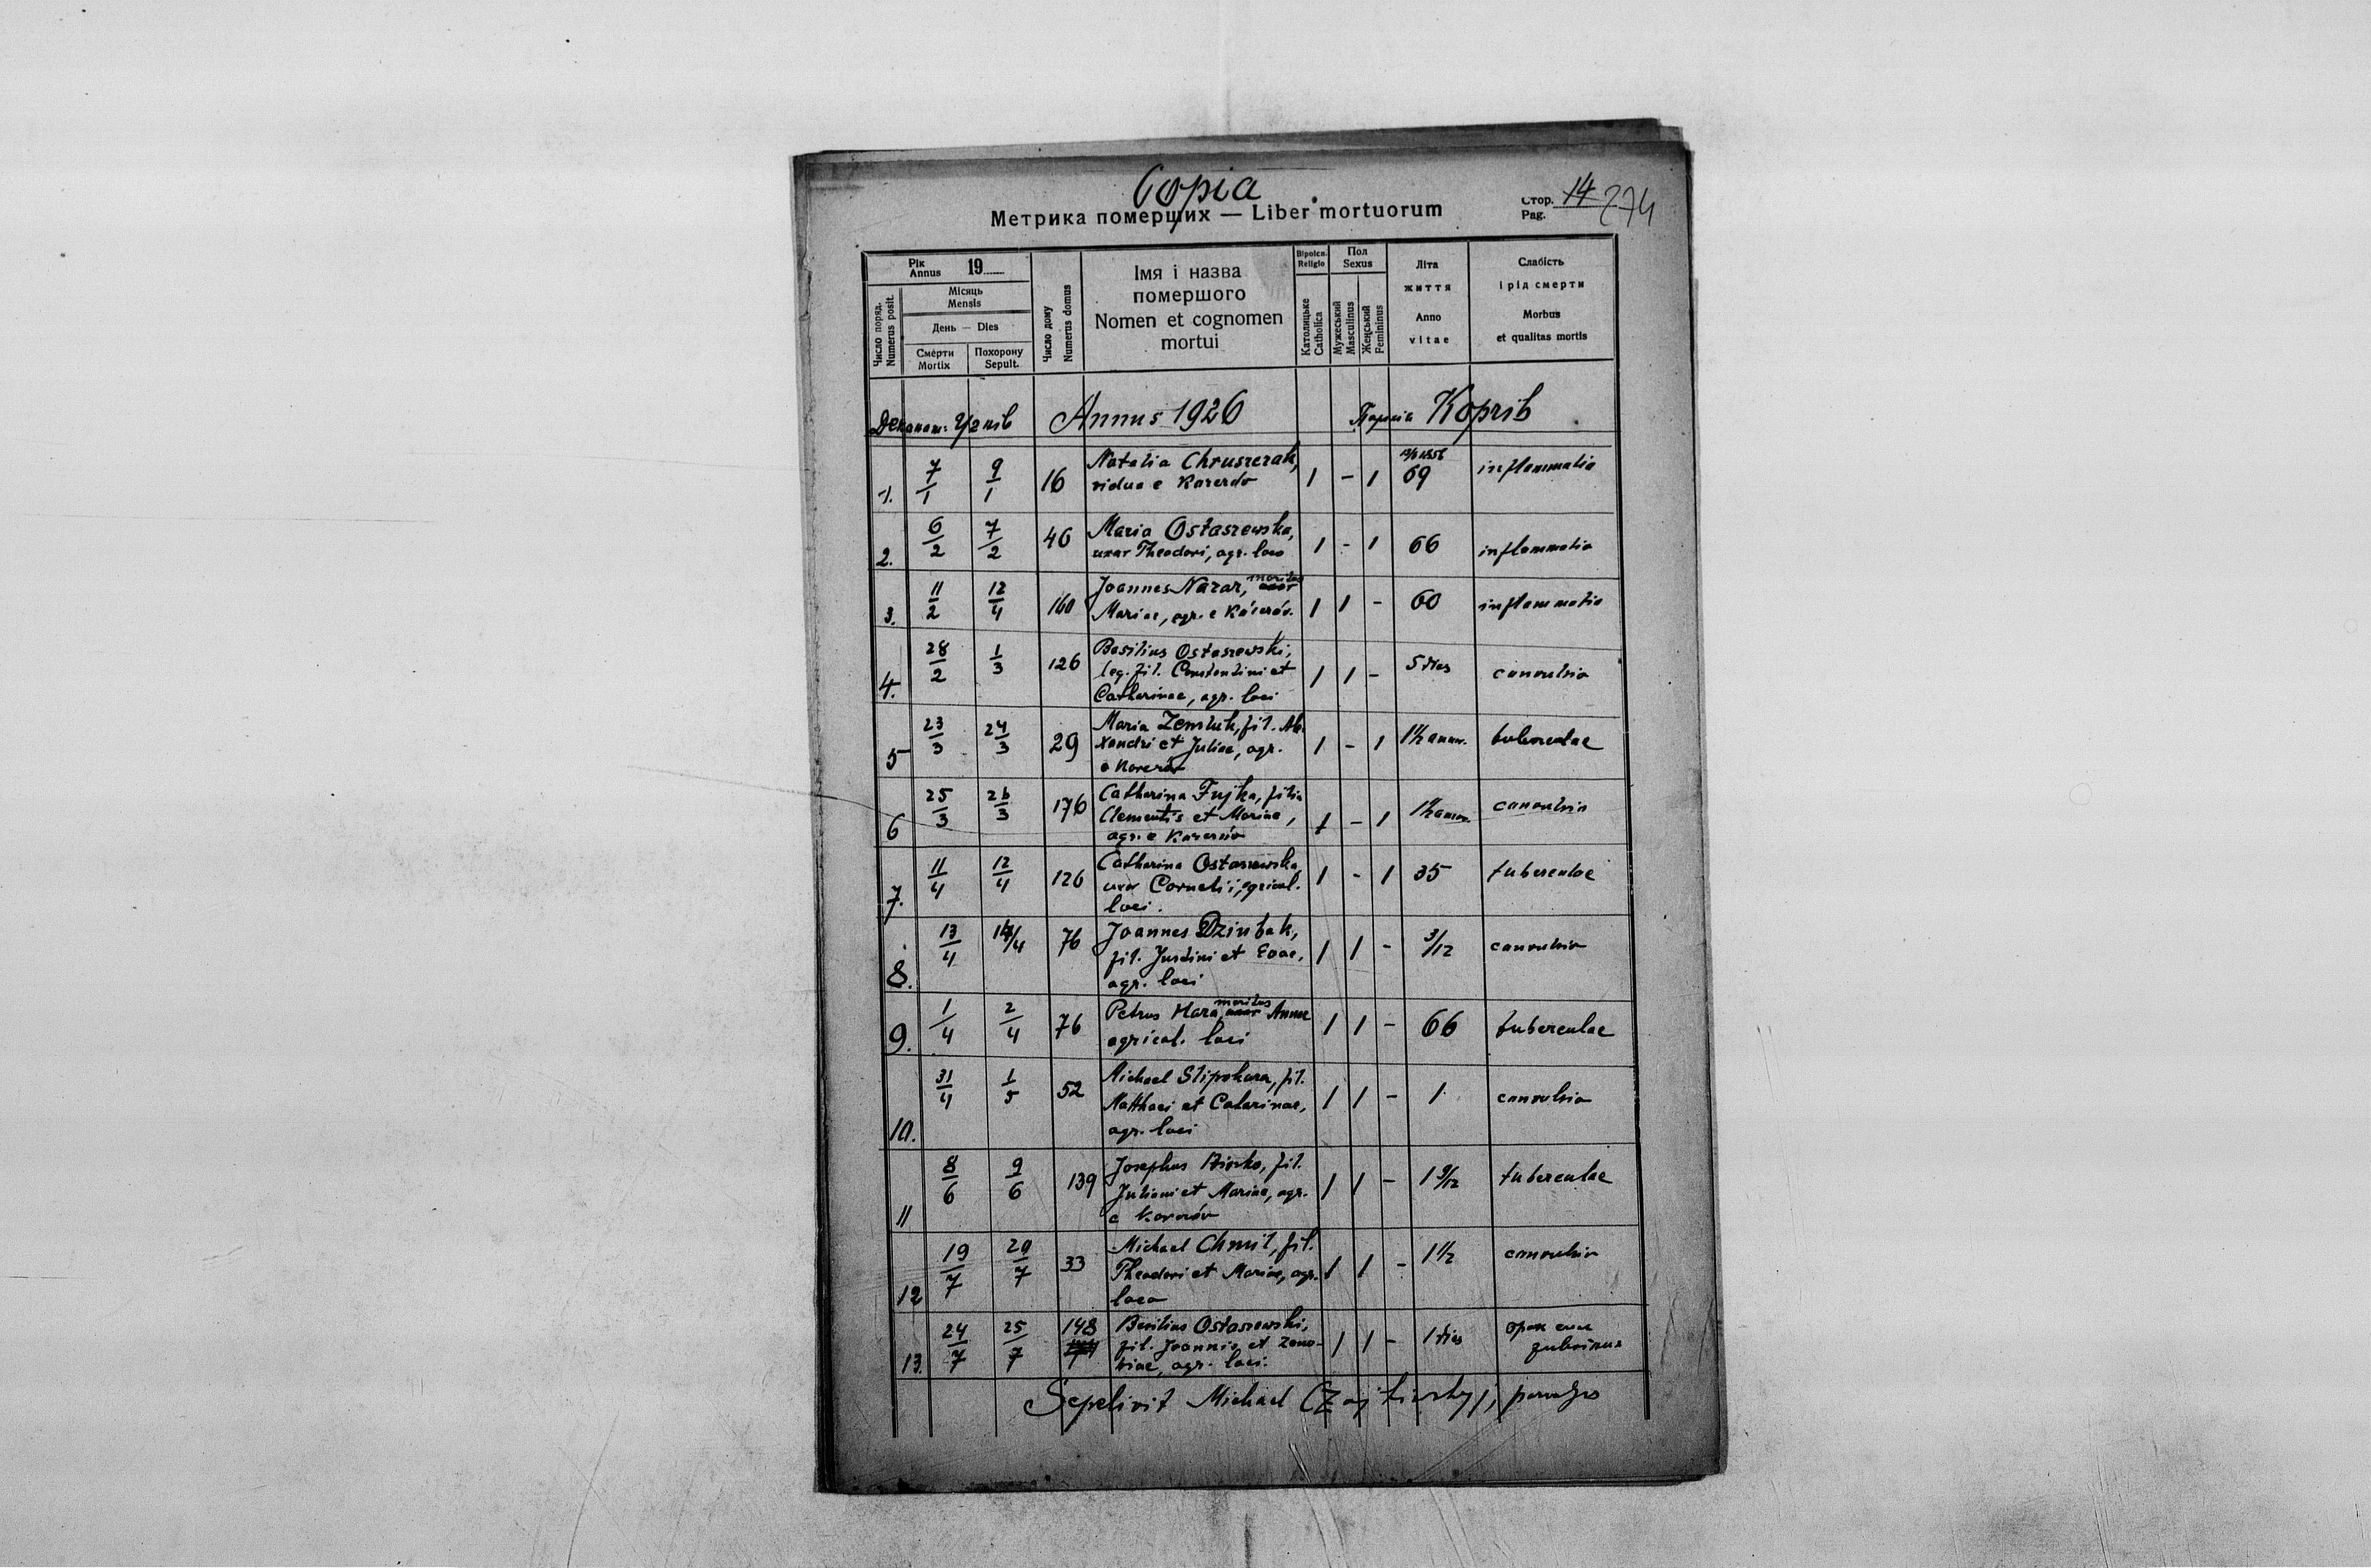 Copia
Метрика померших — Liber mortuorum
Стор. 14 274
Pag.
Рік
Annus 19
Місяць
Mensis
День — Dies
Смерти
Mortix
Похорону
Sepult.
Число поряд.
Numerus posit.
Число дому
Numerus domus
Імя і назва
помершого
Nomen et cognomen
mortui
Віроісп.
Religio
Католицьке
Catholica
Пол
Sexus
Мужеський
Masculinus
Женський
Femininus
Літа
життя
Anno
vitae
Слабість
і рід смерти
Morbus
et qualitas mortis
Деканат: Угнів Annus 1926 Парохія Корчів
1. 7/1 9/1 16 Natalia Chruszczak, 1 - 1 69 inflammatio
vidua e
2. 6/2 7/2 46 Maria Ostaszewska, 1 - 1 66 inflammatio
uxor Theodori, agr. loco
3. 11/2 12/4 160 Joannes Nazar, maritus 1 1 - 60 inflammatio
Mariae, agr. e
4. 28/2 1/3 126 Basilius Ostaszewski, 1 1 - 5 dies convulsio
leg. fil. Constantini et
Catharinae, agr. loci
5 23/3 24/3 29 Maria Zemluk, fil. Ale 1 - 1 1½ annor. tuberculae
xandri et Juliae, agr.
e
6 25/3 26/3 176 Catharina Fujka, filia 1 - 1 1½ annor. convulsio
Clementis et Mariae,
agr. e
7. 11/4 12/4 126 Catharina Ostaszewska, 1 - 1 35 tuberculae
uxor Cornelii, agricol.
loci.
8. 13/4 14/4 76 Joannes Dziubak, 1 1 - 3/12 convulsio
fil. Justini et Evae,
agr. loci
9. 1/4 2/4 76 Petrus Hara, maritus Annae 1 1 - 66 tuberculae
agricol. loci
10. 31/4 1/5 52 Michael Slipokura, fil. 1 1 - 1 convulsio
Matthaei et Catarinae,
agr. loci
11 8/6 9/6 139 Josephus fil. 1 1 - 1 9/12 tuberculae
Juliani et Mariae, agr.
e
12 19/7 20/7 33 Michael Chmil, fil. 1 1 - 1½ convulsio
Theodori et Mariae, agr.
loco
13. 24/7 25/7 148 Basilius Ostaszewski, 1 1 - 1 dies
fil. Joannis et Zeno-
biae, agr. loci.
Sepelivit Michael parochus